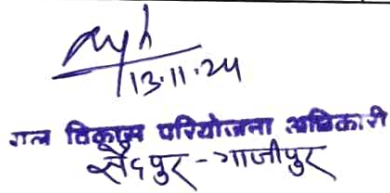 13.11.24
विकास परियोजना अधिकारी
सैदपुर - गाजीपुर